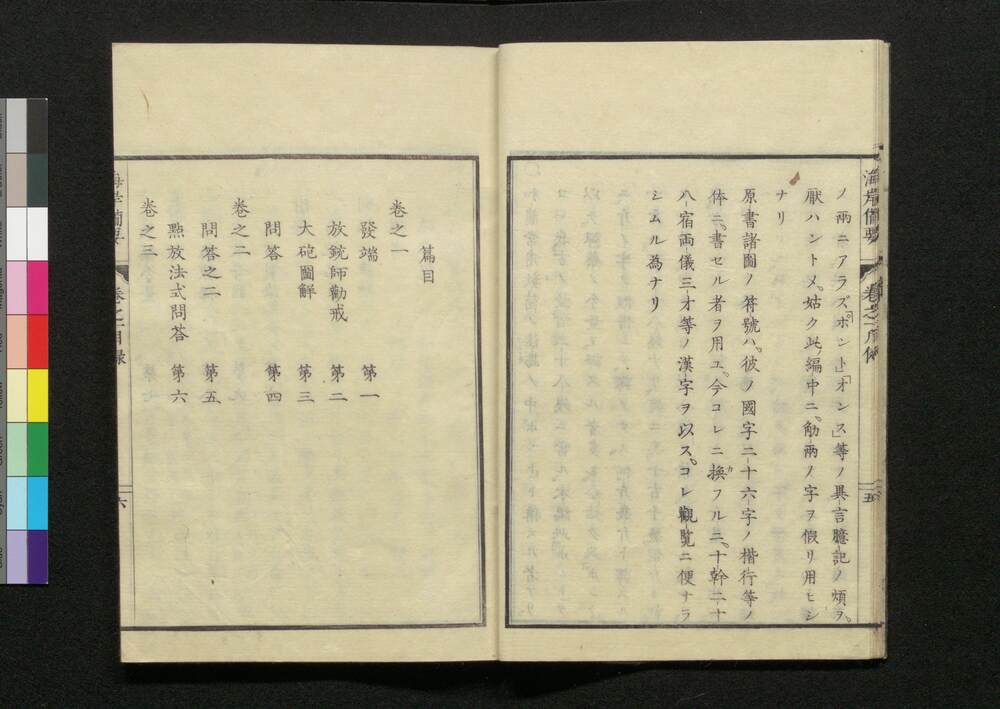 ノ兩ニアラズ「ポント」「オンス」等ノ異言臆記ノ煩ヲ。
厭ハントメ。姑ク此編中ニ。觔兩ノ字ヲ假リ用ヒシ
ナリ
原書諸圖ノ符號ハ。彼ノ國字二十六字ノ楷行等ノ
体ニ。書セル者ヲ用ユ。今コレニ換フルニ。十幹二十
八宿兩儀三才等ノ漢字ヲ以ス。コレ觀覧ニ便ナラ
シムル爲ナリ
海岸備要
卷之一
五
篇目
卷之一
發端 第一
放銃師勸戒 第二
大砲圖解 第三
問答 第四
卷之二
問答之二 第五
卷之三
㸃放法式問答 第六
卷之一目録
六